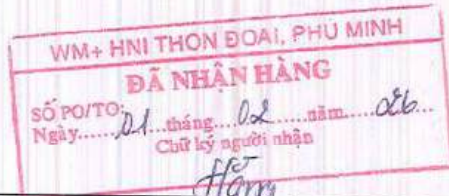 WM+ HNI THON ĐOAI, PHÚ MINH
ĐÃ NHẬN HÀNG
SỐ PO/TO:
Ngày......01...tháng....02......năm....026...
Chữ ký người nhận